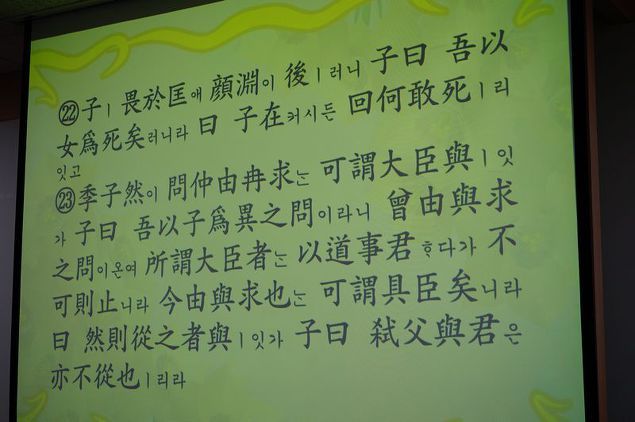 ㉒子ㅣ 畏於匡애 顔淵이 後ㅣ러니 子曰 吾以
女爲死矣러니라 曰 子在커시든 回何敢死ㅣ리
잇고
㉓季子然이 問仲由冉求는 可謂大臣與ㅣ잇
가 子曰 吾以子爲異之問이라니 曾由與求
之問이온여 所謂大臣者는 以道事君ᄒᆞ다가 不
可則止니라 今由與求也는 可謂具臣矣니라
曰 然則從之者與ㅣ잇가 子曰 弑父與君은
亦不從也ㅣ리라